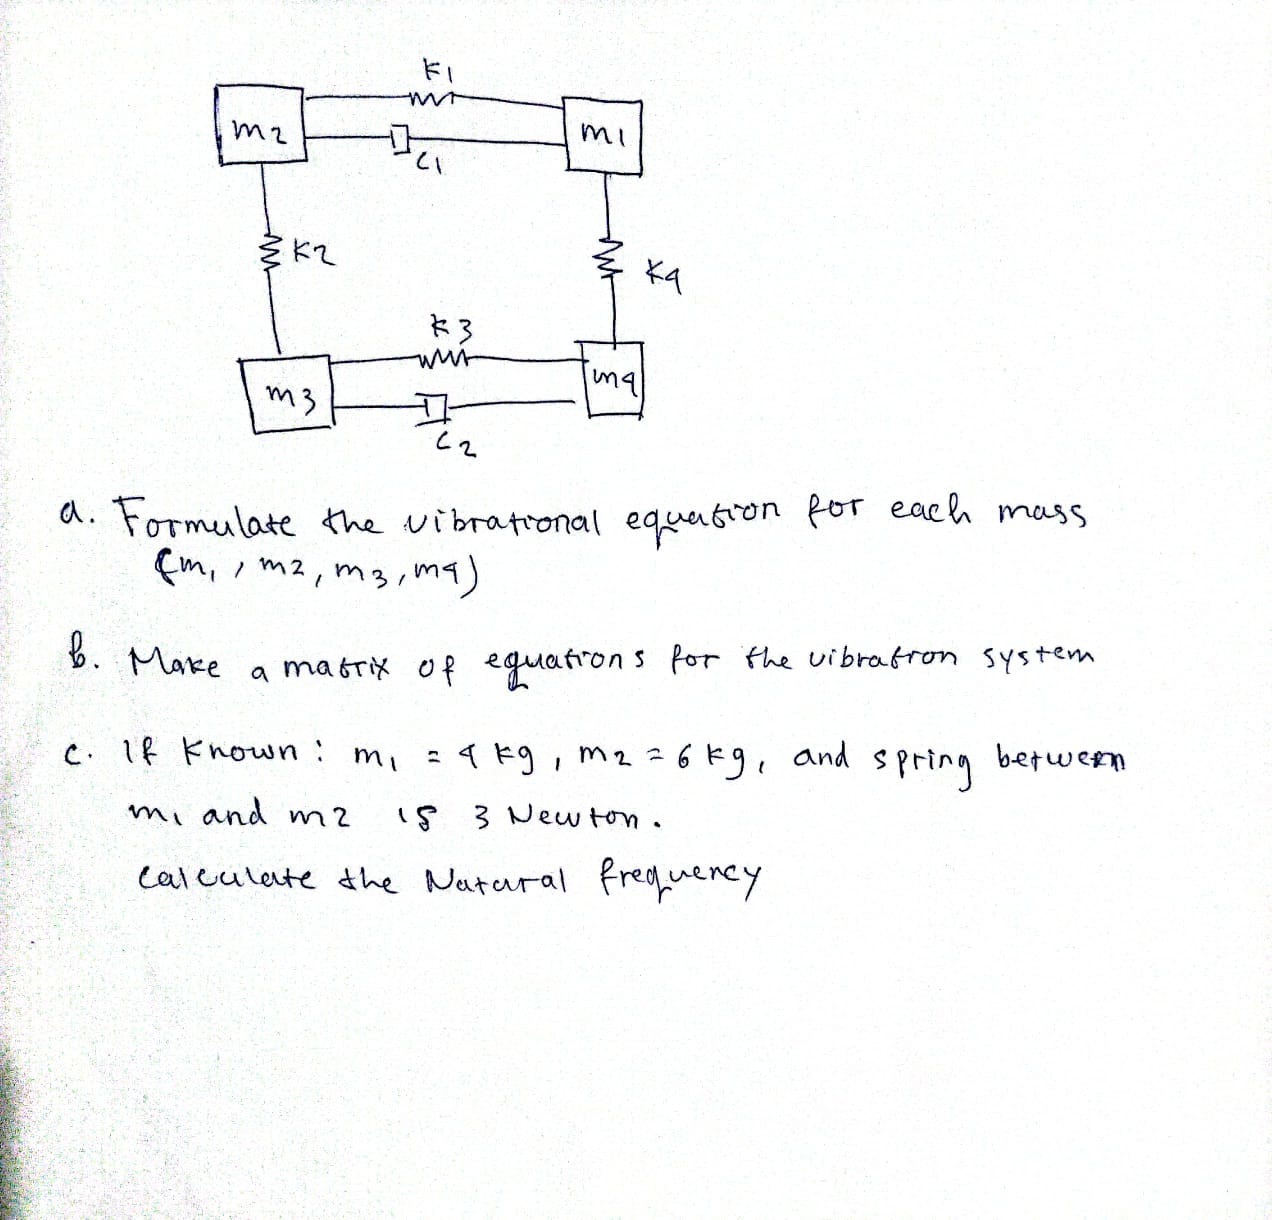 K1
m2
m1
C1
K2
K4
K3
m3
m4
C2
a. Formulate the vibrational equation for each mass
(m1, m2, m3, m4)
b. Make a matrix of equations for the vibration system
c. If Known: m1 = 4 kg, m2 = 6 kg, and spring between
m1 and m2 is 3 Newton.
Calculate the Natural frequency